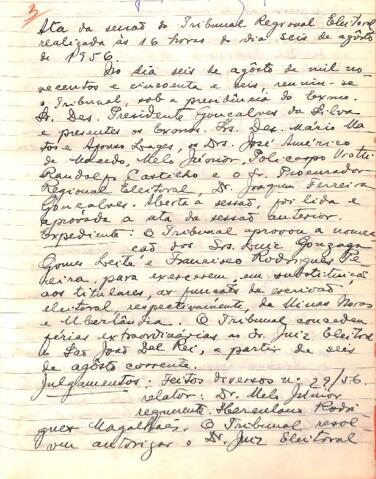 3
Ata da sessão do Tribunal Regional Eleitoral
realizada às 16 horas do dia seis de agôsto
de 1956.
No dia seis de agôsto de mil no-
vecentos e cincoenta e seis, reuniu-se
o Tribunal, sob a presidência do Exmo.
Sr. Des. Presidente Gonçalves da Silva
e presentes os Exmos. Srs. Des. Mário Ma-
tos e Afonso Lages, os Drs. José Américo
de Macedo, Melo Júnior, Policarpo Viotti
Randolfo Castilho e o Sr. Procurador
Regional Eleitoral, Dr. Joaquim Ferreira
Gonçalves. Aberta a sessão, foi lida e
aprovada a ata da sessão anterior.
Expediente: O Tribunal aprovou a nomea-
ção dos Srs. Luiz Gonzaga
Gomes Leite e Francisco Rodrigues Pe-
reira, para exercerem, em substituição
aos titulares, as funções de escrivão
eleitoral, respectivamente, de Minas Novas
e Uberlândia. O Tribunal concedeu
férias extraordinárias ao dr. Juiz Eleitoral
de São João Del Rei, a partir de seis
de agôsto corrente.
Julgamentos: Feitos diversos n. 29/56.
relator: Dr. Melo Júnior
requerente: Herculano Rodri-
gues Magalhães. O Tribunal resol-
veu autorizar o Dr. Juiz Eleitoral